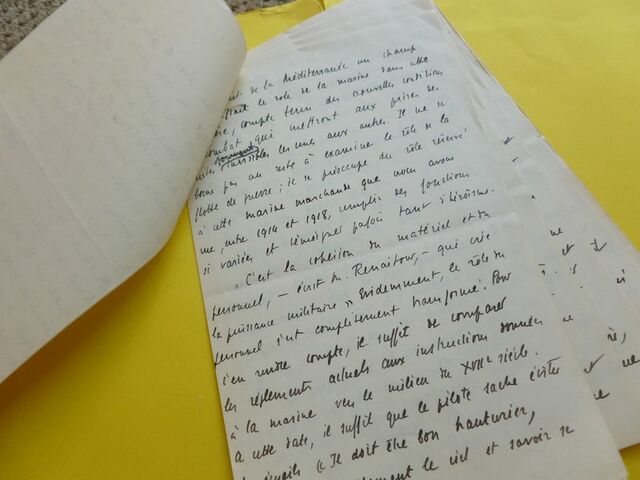 de la Méditerranée un champ
le rôle de la marine dans cette
, compte tenu des nouvelles conditions
combat qui mettront aux prises des
invisibles les unes aux autres. Il ne se
borne pas au reste à examiner le rôle de la
flotte de guerre ; il se préoccupe du rôle réservé
à cette marine marchande que nous avons
vue, entre 1914 et 1918, remplir des fonctions
si variées et témoigner parfois tant d'héroïsme.
« C'est la cohésion du matériel et du
personnel, – écrit M. Renaitour, – qui crée
la puissance militaire » Evidemment, le rôle du
personnel s'est complètement transformé. Pour
s'en rendre compte, il suffit de comparer
les règlements actuels aux instructions données
à la marine vers le milieu du XVIIe siècle.
A cette date, il suffit que le pilote sache éviter
« Il doit être bon hauturier,
le ciel et savoir se